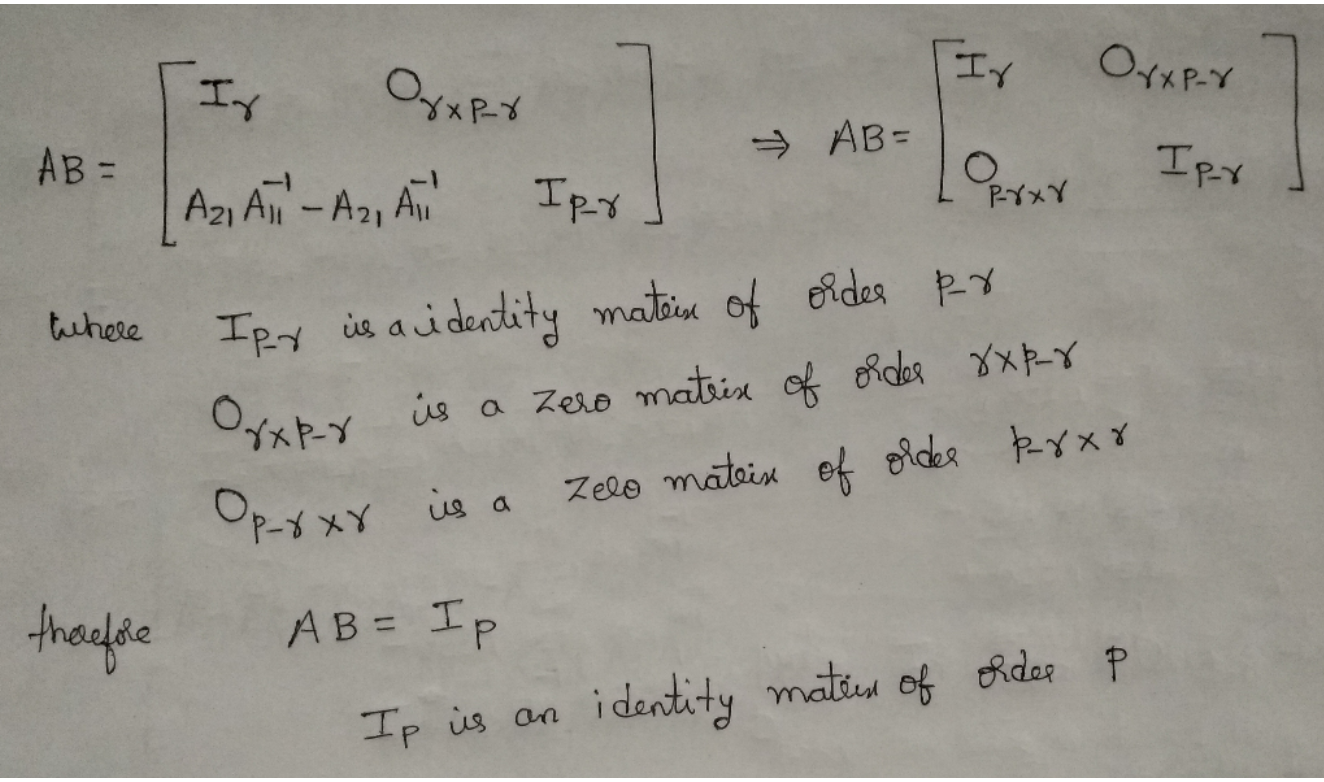 AB = [ I_r O_{r×p-r} ; A_{21} A_{11}^{-1} - A_{21} A_{11}^{-1} I_{p-r} ] ⇒ AB = [ I_r O_{r×p-r} ; O_{p-r×r} I_{p-r} ]
where I_{p-r} is a identity matrix of order p-r
O_{r×p-r} is a zero matrix of order r×p-r
O_{p-r×r} is a zero matrix of order p-r×r
therefore AB = I_p
I_p is an identity matrix of order p